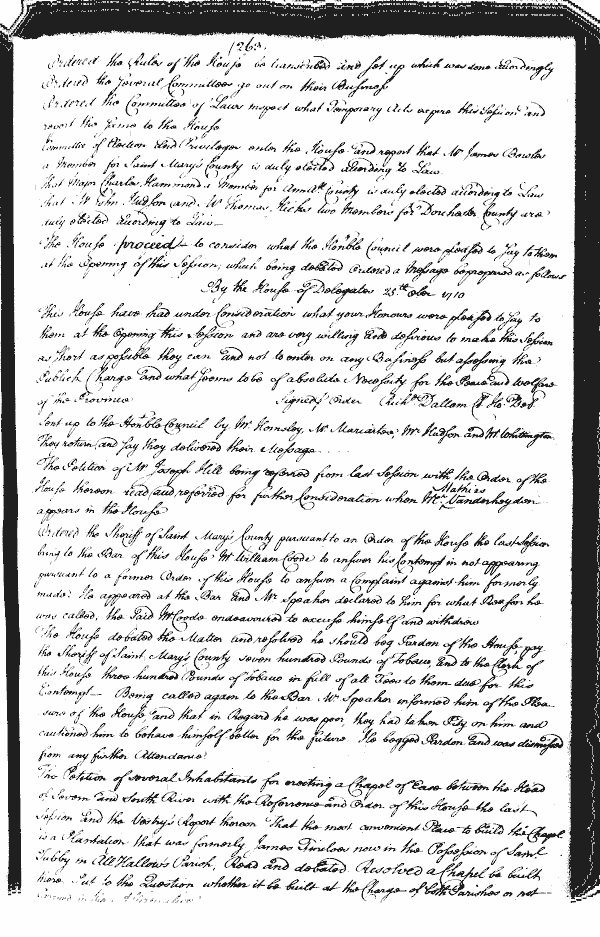 263.
Ordered the Rules of the House be transcribed and set up which was done accordingly
Ordered the several Committees go out on their Business
Ordered the Committee of Laws inspect what Temporary Acts expire this Session and
report the same to the House
Committee of Election and Priviledges enter the House and report that Mr James Bowles
a Member for Saint Mary's County is duly elected according to Law
That Major Charles Hammond a Member for Annll County is duly elected according to Law
that Mr John Hudson and Mr Thomas Hicks two Members for Dorchester County are
duly elected according to Law
The House proceed to consider what the Honble Council were pleased to say to them
at the Opening of this Session, which being debated Ordered a Message be prepared as follows
By the House of Delegates 25th Ober 1710
This House have had under Consideration what your Honours were pleased to say to
them at the opening this Session and are very willing and desirous to make this Session
as short as possible they can and not to enter on any Business but assessing the
Publick Charge and what seems to be of absolute Necessity for the Peace and welfare
of the Province Signed p Order Richd Dallam Cl Ho: Del
Sent up to the Honble Council by Mr Hemsley, Mr Macartee, Mr Hudson and Mr Whittington
They return and say they delivered their Message
The Petition of Mr Joseph Hill being referred from last Session with the Order of the
House thereon read and referred for further Consideration when Mr Mathias Vanderheyden
appears in the House
Ordered the Sheriff of Saint Mary's County pursuant to an Order of the House the last Session
bring to the Bar of this House Mr William Coode to answer his Contempt in not appearing
pursuant to a former Order of this House to answer a Complaint against him formerly
made. He appeared at the Bar and Mr Speaker declared to him for what Reason he
was called, the said Mr Coode endeavoured to excuse himself and withdrew
The House debated the Matter and resolved he should beg Pardon of the House, pay
the Sheriff of Saint Mary's County seven hundred Pounds of Tobacco, and to the Clerk of
this House three hundred Pounds of Tobacco in full of all Fees to them due for this
Contempt Being called again to the Bar Mr Speaker informed him of the Plea
sure of the House and that in Regard he was poor, they had taken Pity on him and
cautioned him to behave himself better for the future. He begged Pardon and was dismissed
from any further Attendance
The Petition of several Inhabitants for erecting a Chapel of Ease between the Head
of Severn and South River with the Reference and Order of this House the last
Session and the Vestry's Report thereon That the most convenient Place to build the Chapel
is a Plantation that was formerly James Finloes now in the Possession of Saml
Tubby in All Hallows Parish, Read and debated. Resolved a Chapel be built
there. Put to the Question whether it be built at the Charge of both Parishes or not